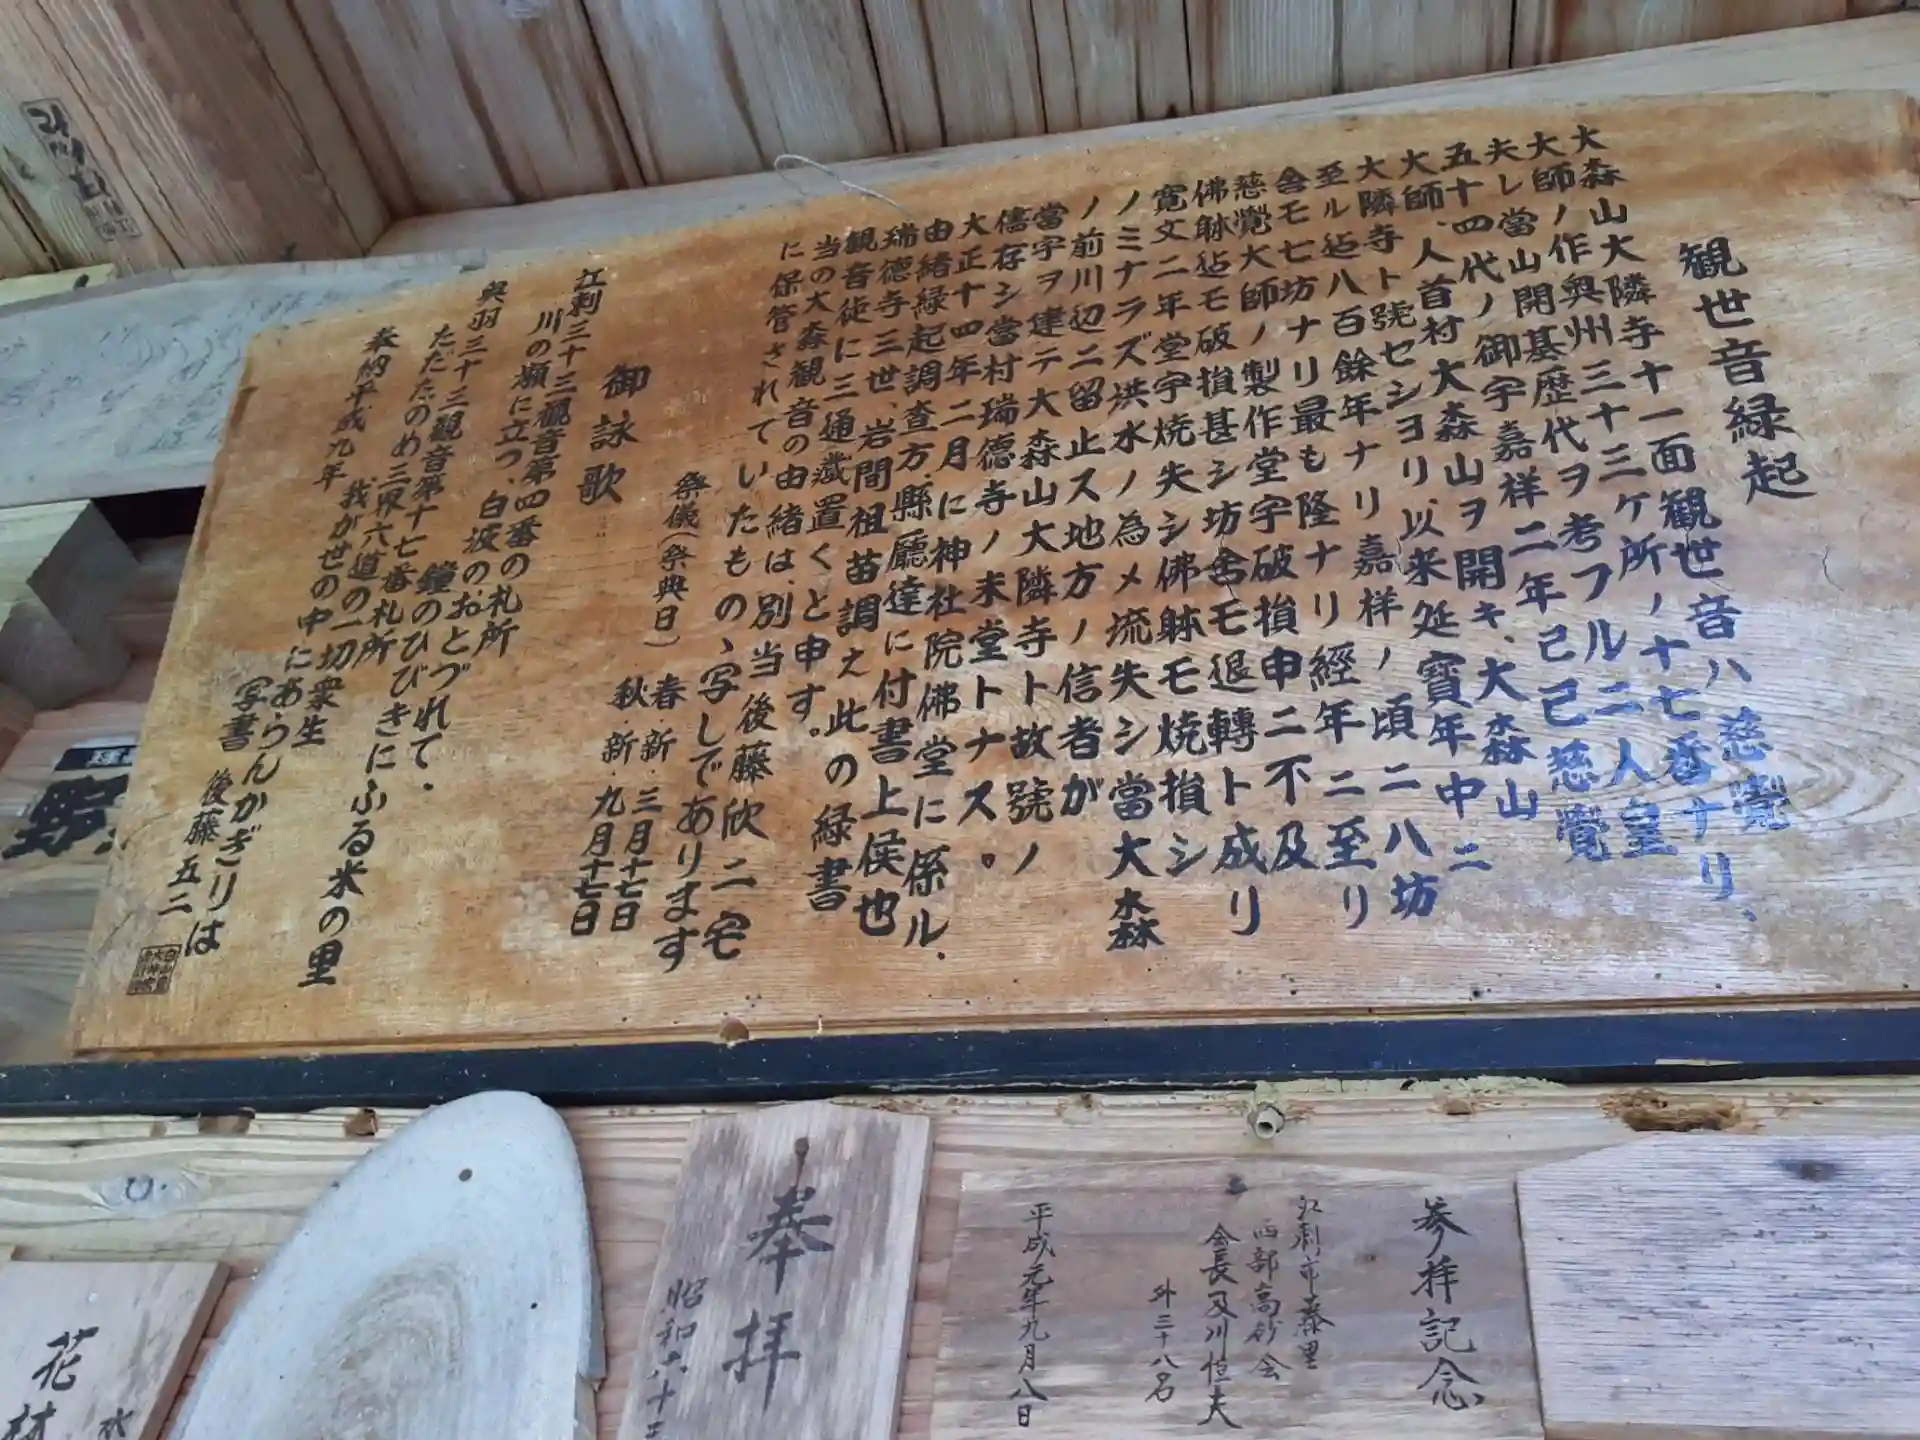 観世音緑起
大森山大隣寺十一面観世音ハ慈覺
大師ノ作奥州三十三ケ所ノ十七番ナリ、
夫レ當山開基歴代ヲ考フル二人皇
五十四代ノ御宇嘉祥二年己巳慈覺
大師、人首村大森山ヲ開キ、大森山
大隣寺ト號セシヨリ以来延寶年中ニ
至ル迠八百餘年ナリ嘉祥ノ頃二八坊
舎モ七坊ナリ最も隆ナリ經年二至リ
慈覺大師ノ製作堂宇破損申二不及
佛躰迠モ破損甚シ坊舎モ退轉ト成リ
寛文二年堂宇焼失シ佛躰モ焼損シ
ノミナラズ洪水ノ為メ流失シ當大森
ノ前川辺ニ留止ス地方ノ信者が
當宇ヲ建テ大森山大隣寺ト故號ノ
儘存シ當村瑞德寺ノ末堂トナス。
大正十四年二月に神社院佛堂に係ル.
由緒緑起調査方、縣廳達に付書上候也
瑞德寺三世、岩間祖苗調え此の緑書
観音徒に三通蔵置くと申す。
当の大森観音の由緒は、別当 後藤欣二宅
に保管されていたもの、写しであります
祭儀(祭典日) 春・新・三月十七日
秋・新・九月十七日
御詠歌
江刺三十三観音第四番の札所
川の瀬に立つ、白波の、おとづれて.
鐘のひびきにふる米の里
奥羽三十三観音第十七番札所
ただたのめ三界六道の一切衆生
我が世の中にあらんかぎりは
奉納平成九年
写書 後藤五二
奉拝
昭和六十三
参拝記念
江刺市
西部高砂会
会長及川恒夫
外三十八名
平成元年九月八日
花